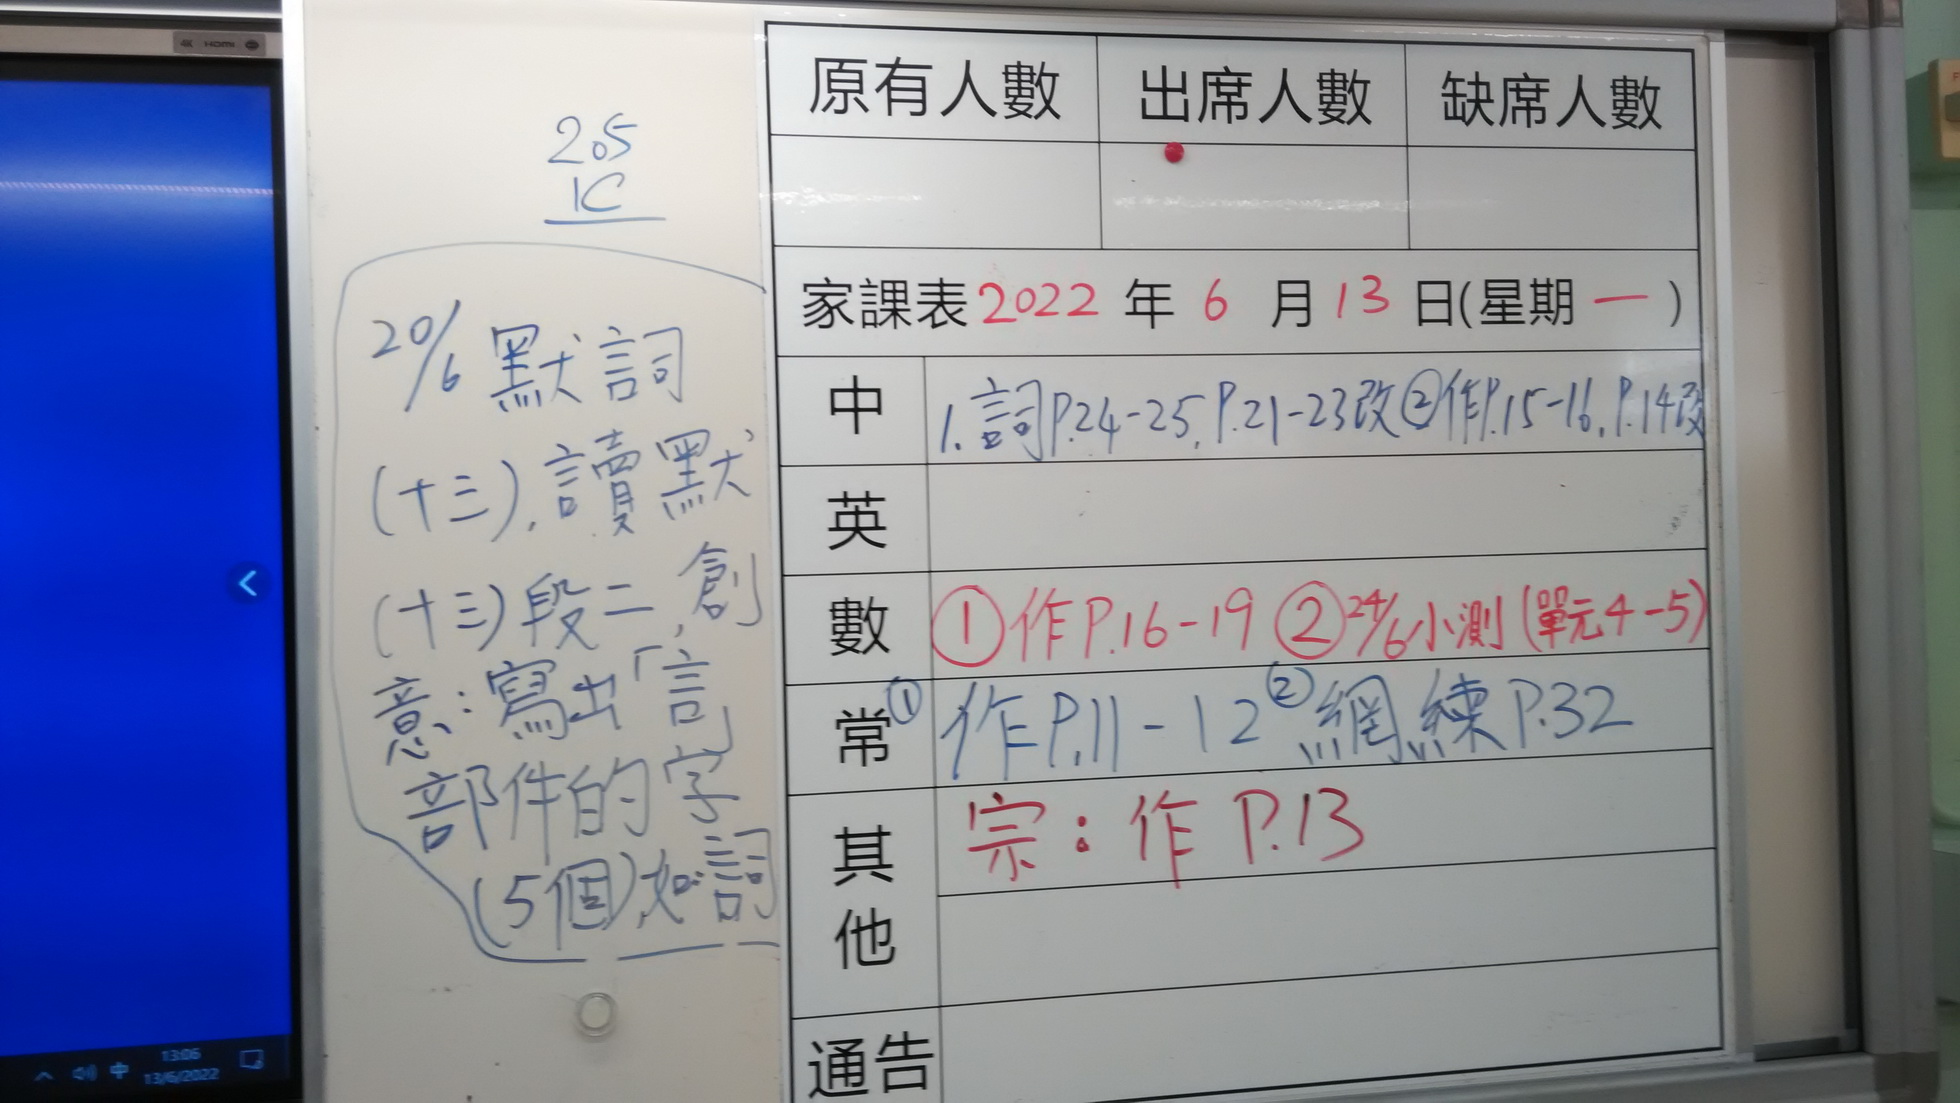 4K HDMI
205
1C
20/6 默詞
(十三),讀默
(十三)段二,創
意:寫出「言」
部件的字
(5個),如:詞
原有人數 出席人數 缺席人數
家課表2022年6月13日(星期一)
中 1.詞P.24-25,P.21-23改②作P.15-16,P.14改
英
數 ①作P.16-19 ②24/6小測(單元4-5)
常 ①作P.11-12 ②網練P.32
其他 宗:作 P.13
通告
中 13:06
13/6/2022